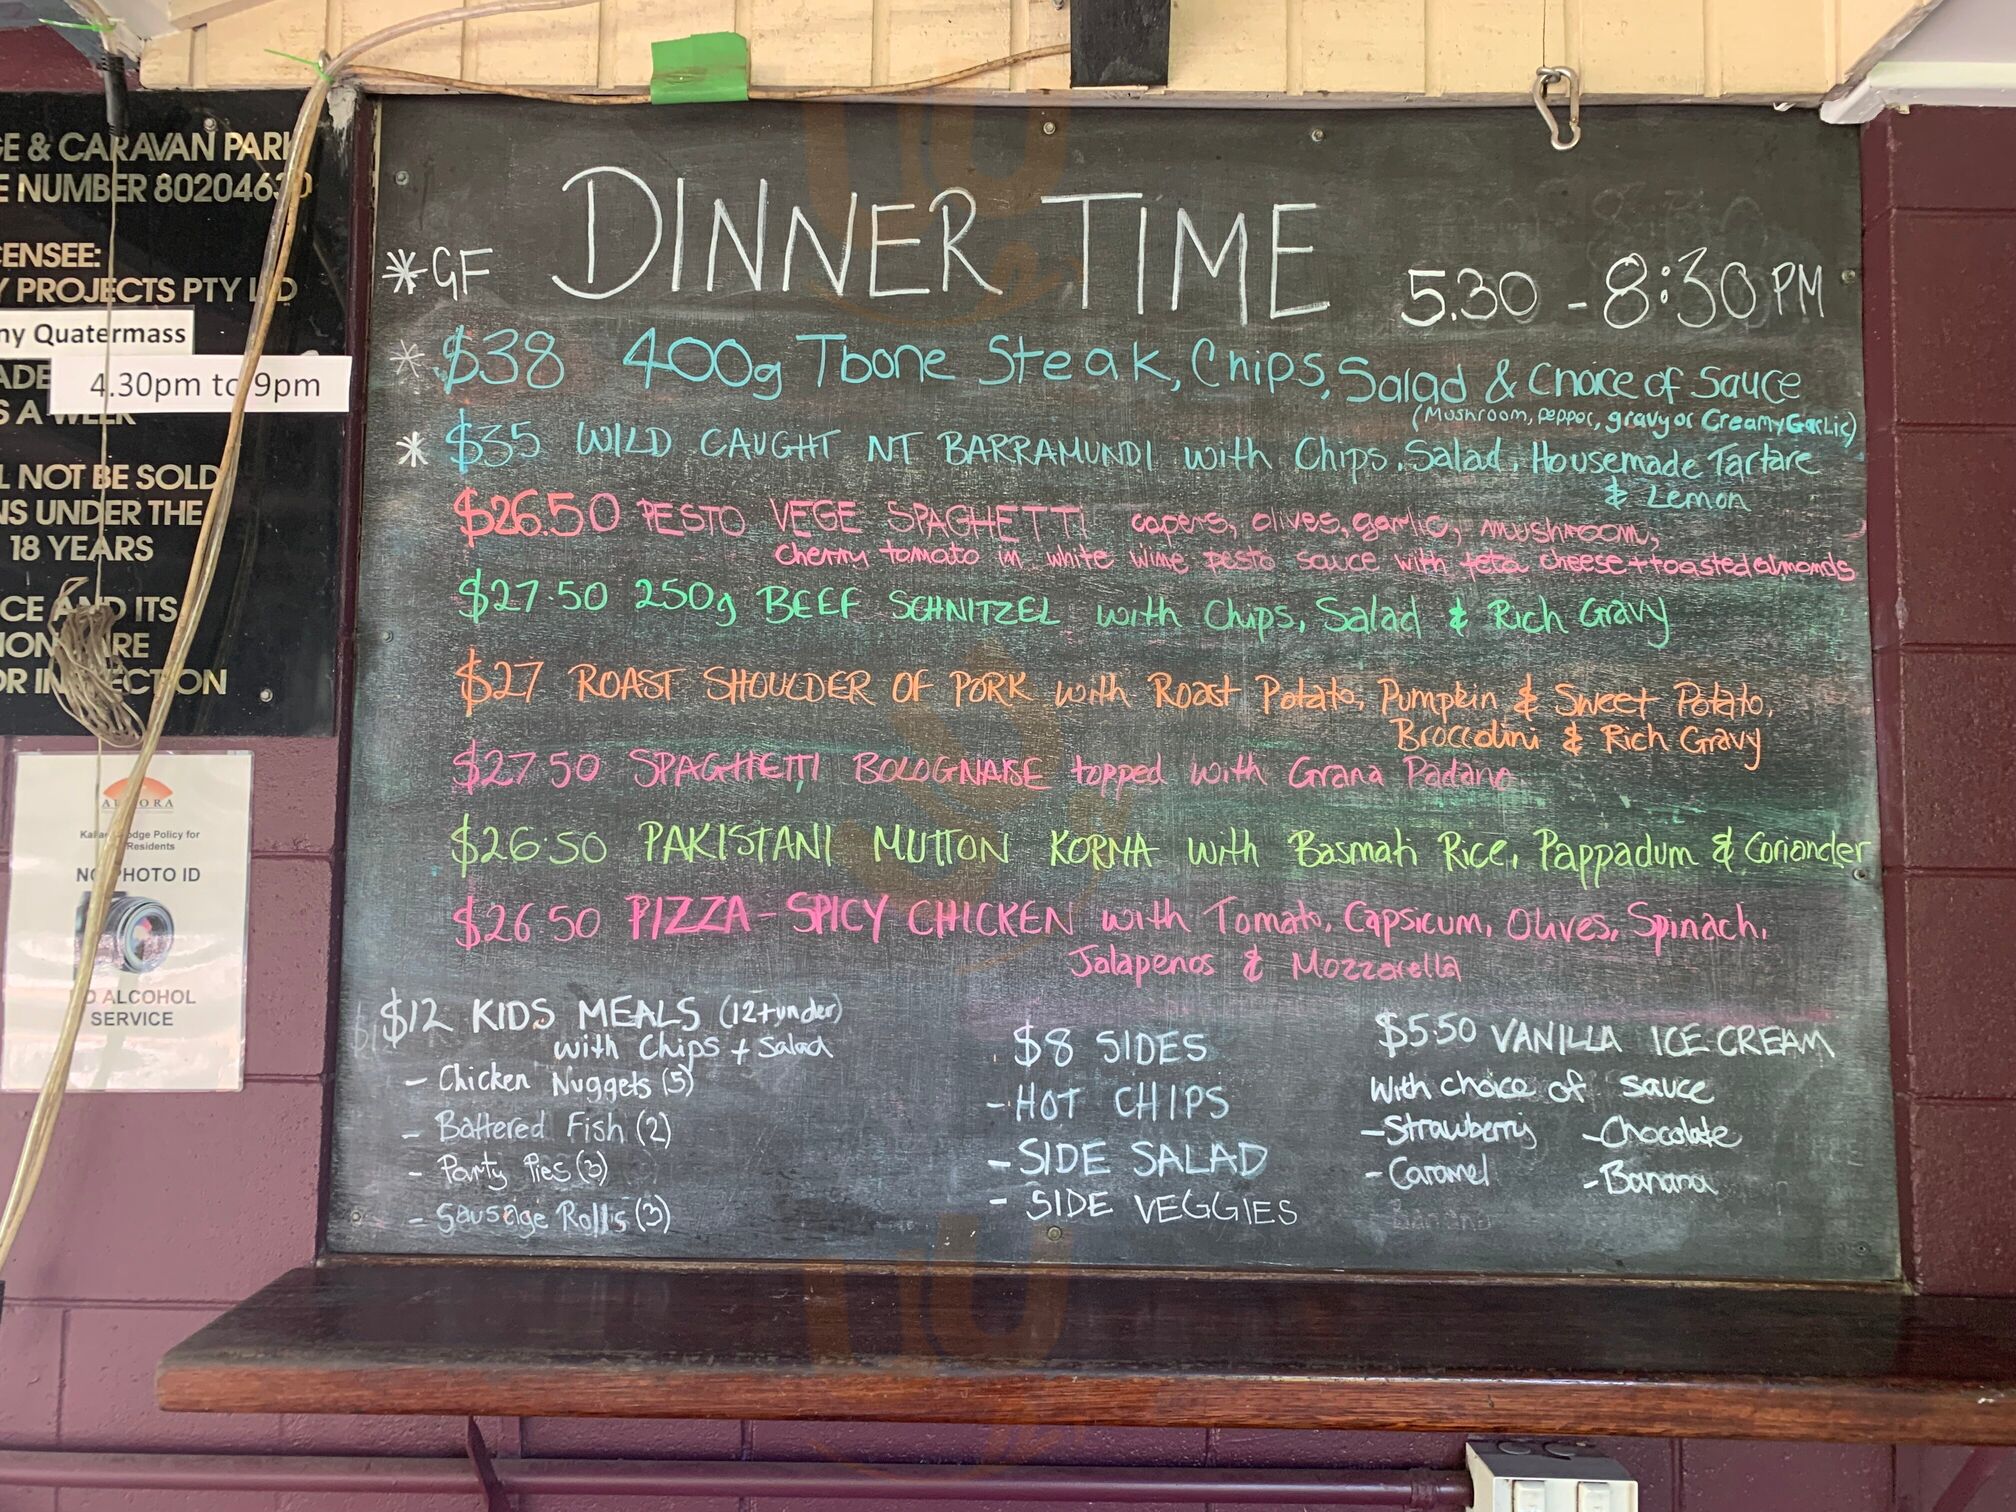 E & CARAVAN PARK
E NUMBER 80204630
CENSEE:
Y PROJECTS PTY LTD
ny Quatermass
4.30pm to 9pm
S A WEEK
L NOT BE SOLD
NS UNDER THE
18 YEARS
CE AND ITS
ARE
OR INSPECTION
AURORA
Policy for
Residents
NO PHOTO ID
NO ALCOHOL
SERVICE
*GF
DINNER TIME
5.30 - 8:30 PM
* $38 400g Tbone Steak, Chips, Salad & Choice of Sauce
(Mushroom, pepper, gravy or Creamy Garlic)
* $35 WILD CAUGHT NT BARRAMUNDI with Chips, Salad, Housemade Tartare
& Lemon
$26.50 PESTO VEGE SPAGHETTI capers, olives, garlic, mushroom,
cherry tomato in white wine pesto sauce with feta cheese + toasted almonds
$27.50 250g BEEF SCHNITZEL with Chips, Salad & Rich Gravy
$27 ROAST SHOULDER OF PORK with Roast Potato, Pumpkin & Sweet Potato,
Broccolini & Rich Gravy
$27.50 SPAGHETTI BOLOGNAISE topped with Grana Padano
$26.50 PAKISTANI MUTTON KORMA with Basmati Rice, Pappadum & Coriander
$26.50 PIZZA - SPICY CHICKEN with Tomato, Capsicum, Olives, Spinach,
Jalapenos & Mozzarella
$12 KIDS MEALS (12+under)
with Chips + Salad
- Chicken Nuggets (5)
- Battered Fish (2)
- Party Pies (3)
- Sausage Rolls (3)
$8 SIDES
- HOT CHIPS
- SIDE SALAD
- SIDE VEGGIES
$5.50 VANILLA ICE CREAM
With choice of sauce
- Strawberry - Chocolate
- Caramel - Banana
Banana